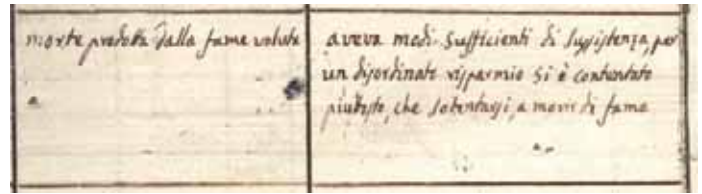 morte prodotta dalla fame voluta
a
aveva modi sufficienti di sussistenza, per
un disordinato risparmio si è contentato
piuttosto, che sotentarsi, a morir di fame